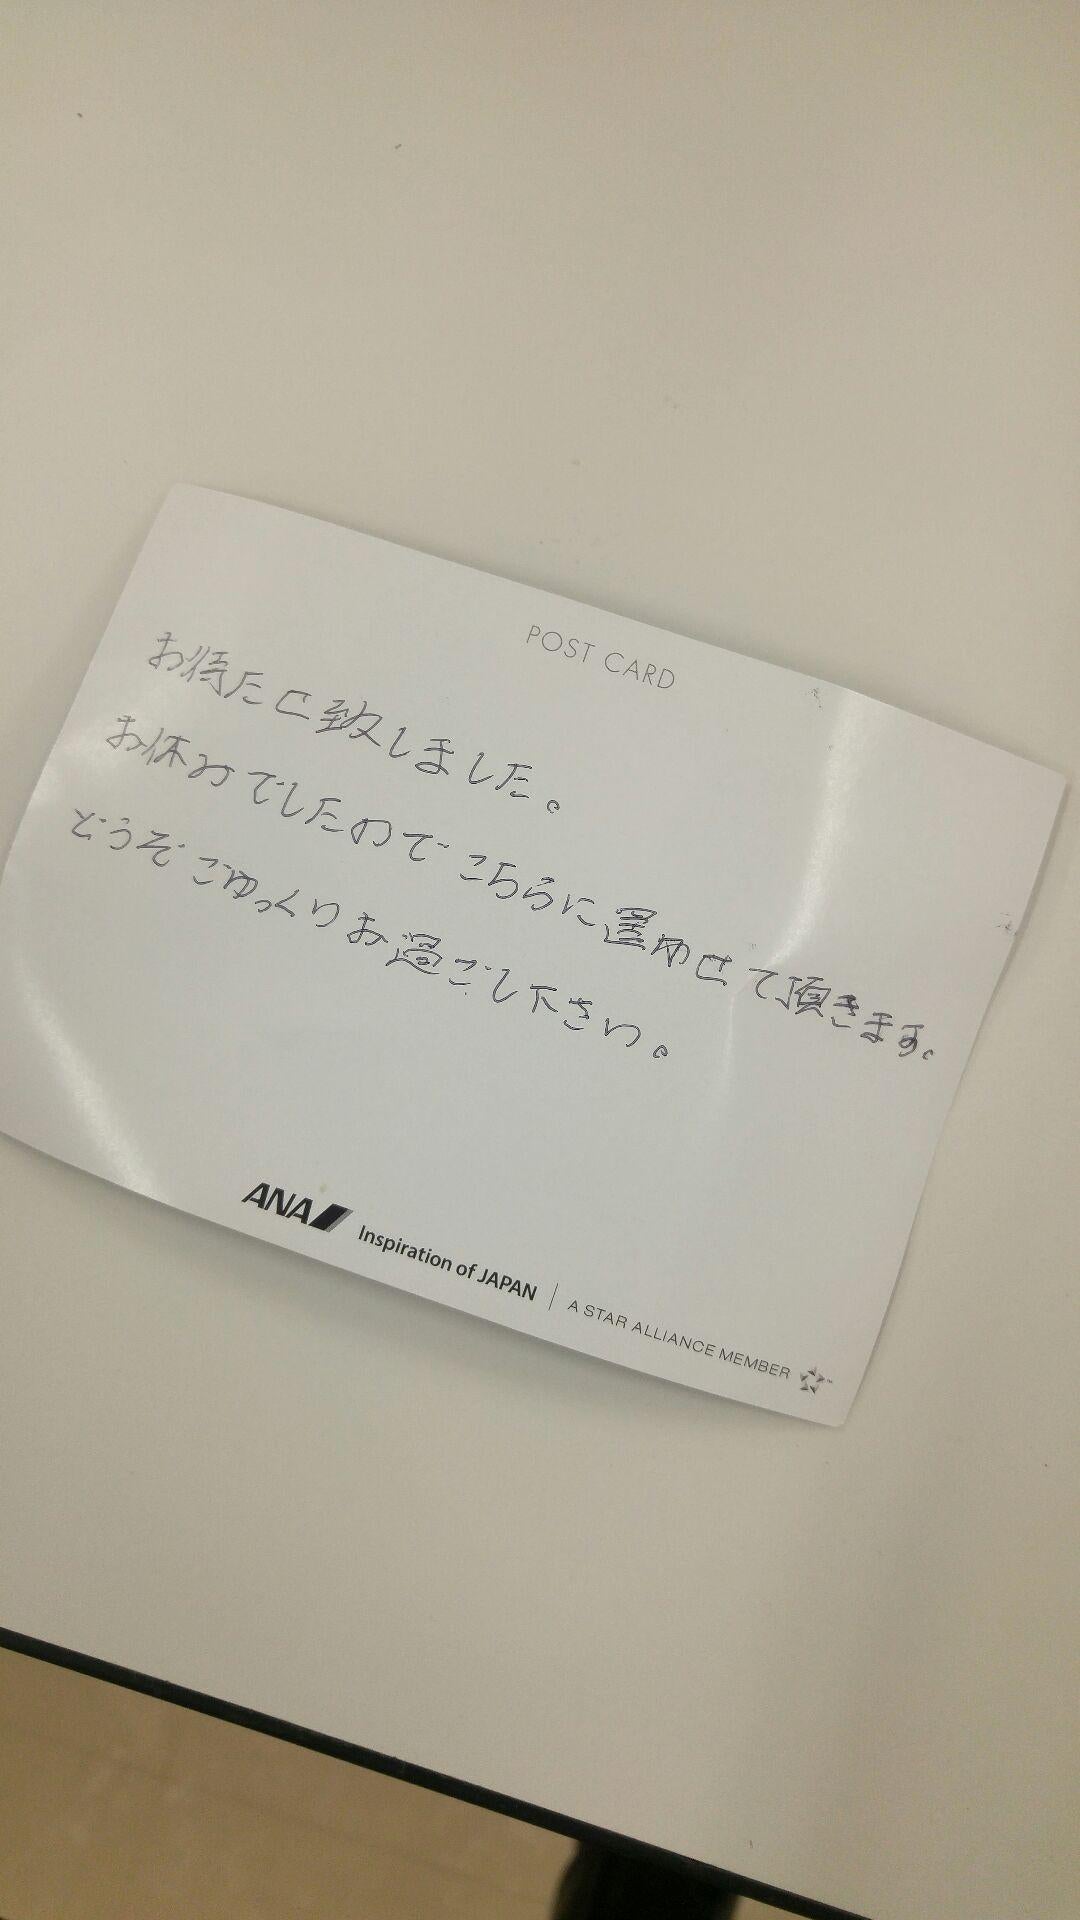 POST CARD
お待たせ致しました。
お休みでしたのでこちらに置かせて頂きます。
どうぞごゆっくりお過ごし下さい。
ANA Inspiration of JAPAN | A STAR ALLIANCE MEMBER